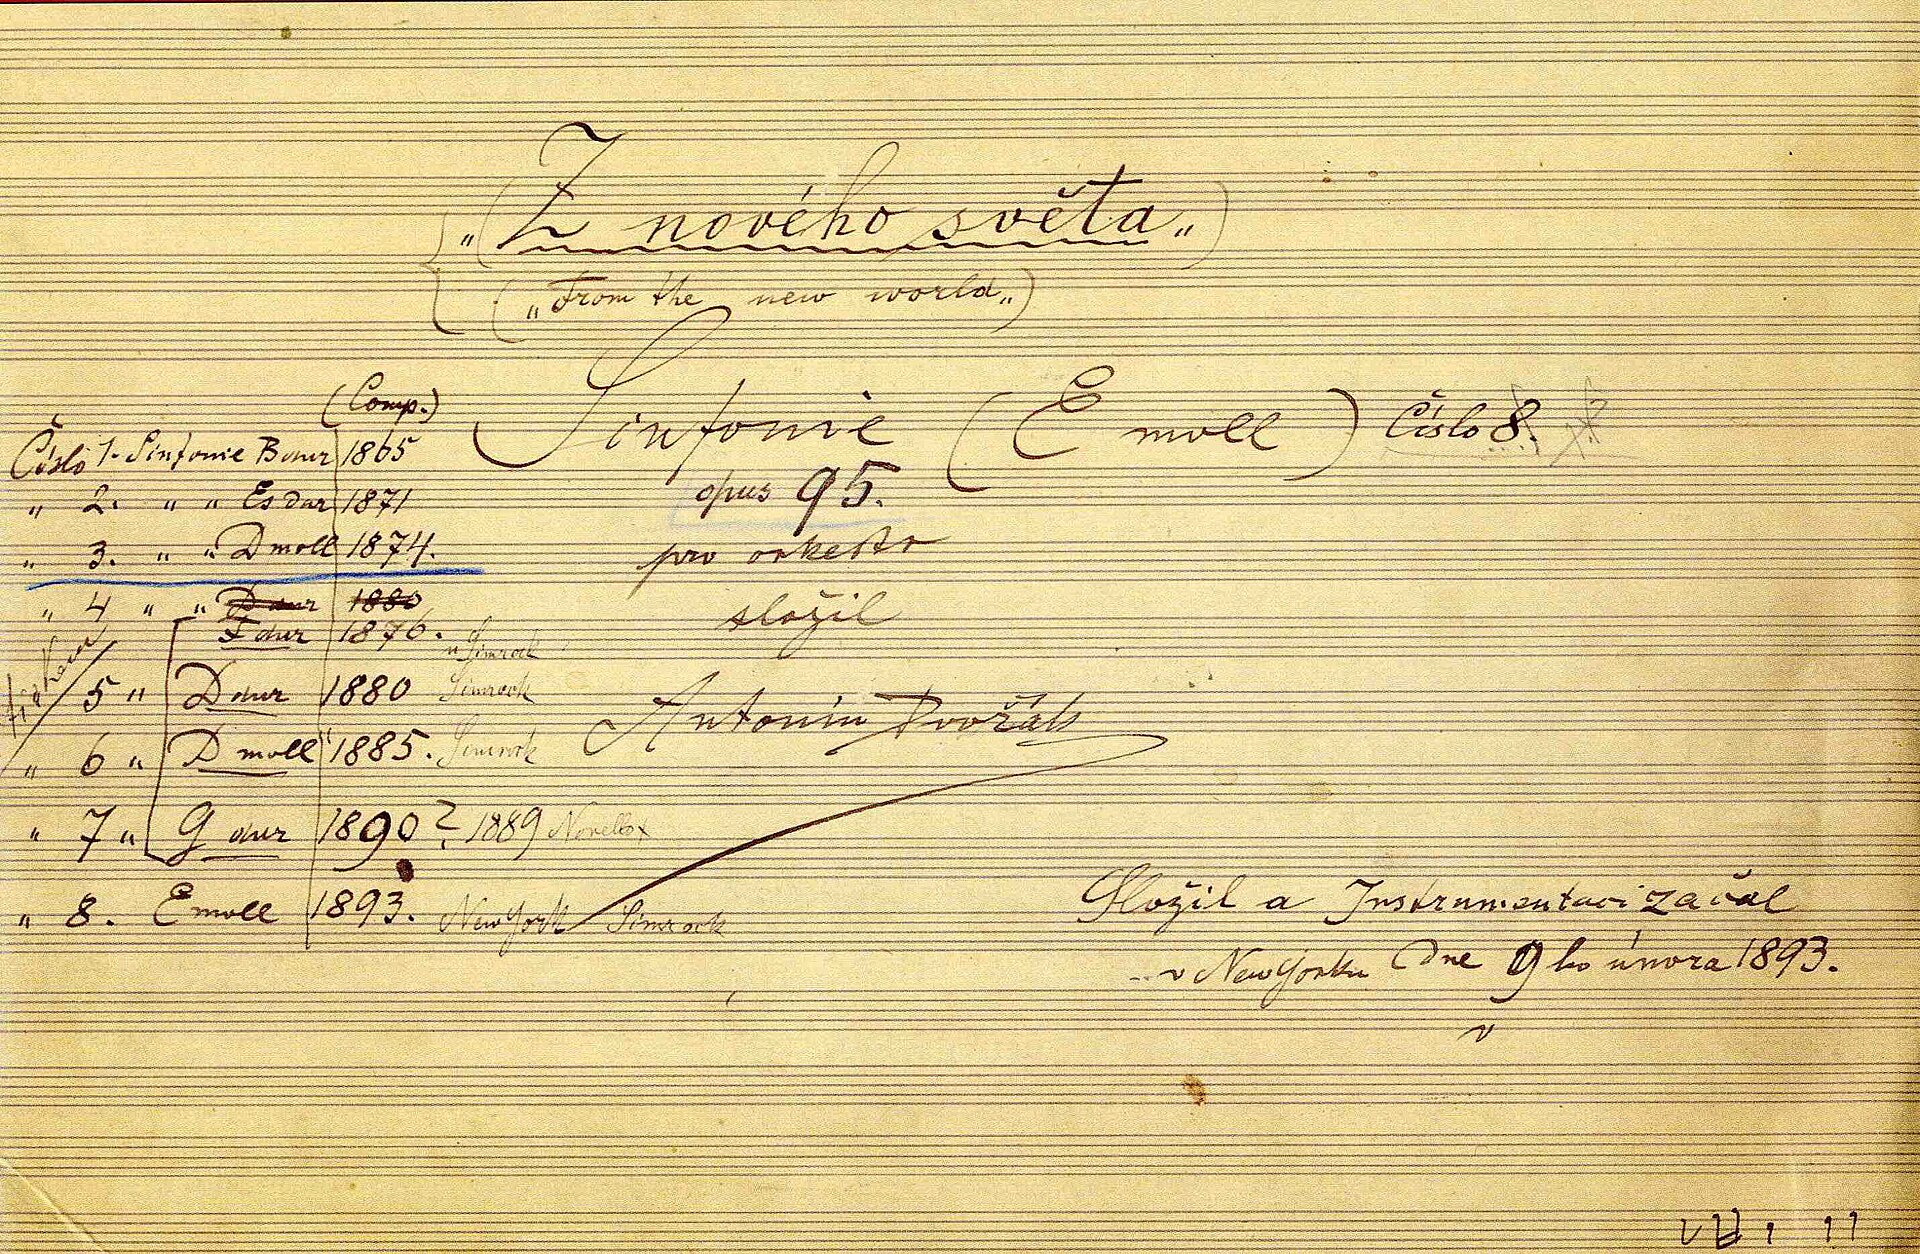 „(Z nového světa„)
(„From the new world„)
Sinfonie (E moll) Číslo 8.
opus 95.
pro orkestr
složil
Antonín Dvořák
(Comp.)
Číslo 1. Sinfonie B dur 1865
„ 2. „ „ Es dur 1871
„ 3. „ „ D moll 1874.
„ 4 „ „ D dur 1880
F dur 1876. „ Simrock
5 „ D dur 1880 Simrock
„ 6 „ D moll 1885. Simrock
„ 7 „ G dur 1890? 1889 Novello
„ 8. E moll 1893. New York Simrock
Složil a Instrumentaci začal
v New Yorku dne 9ho února 1893.
v